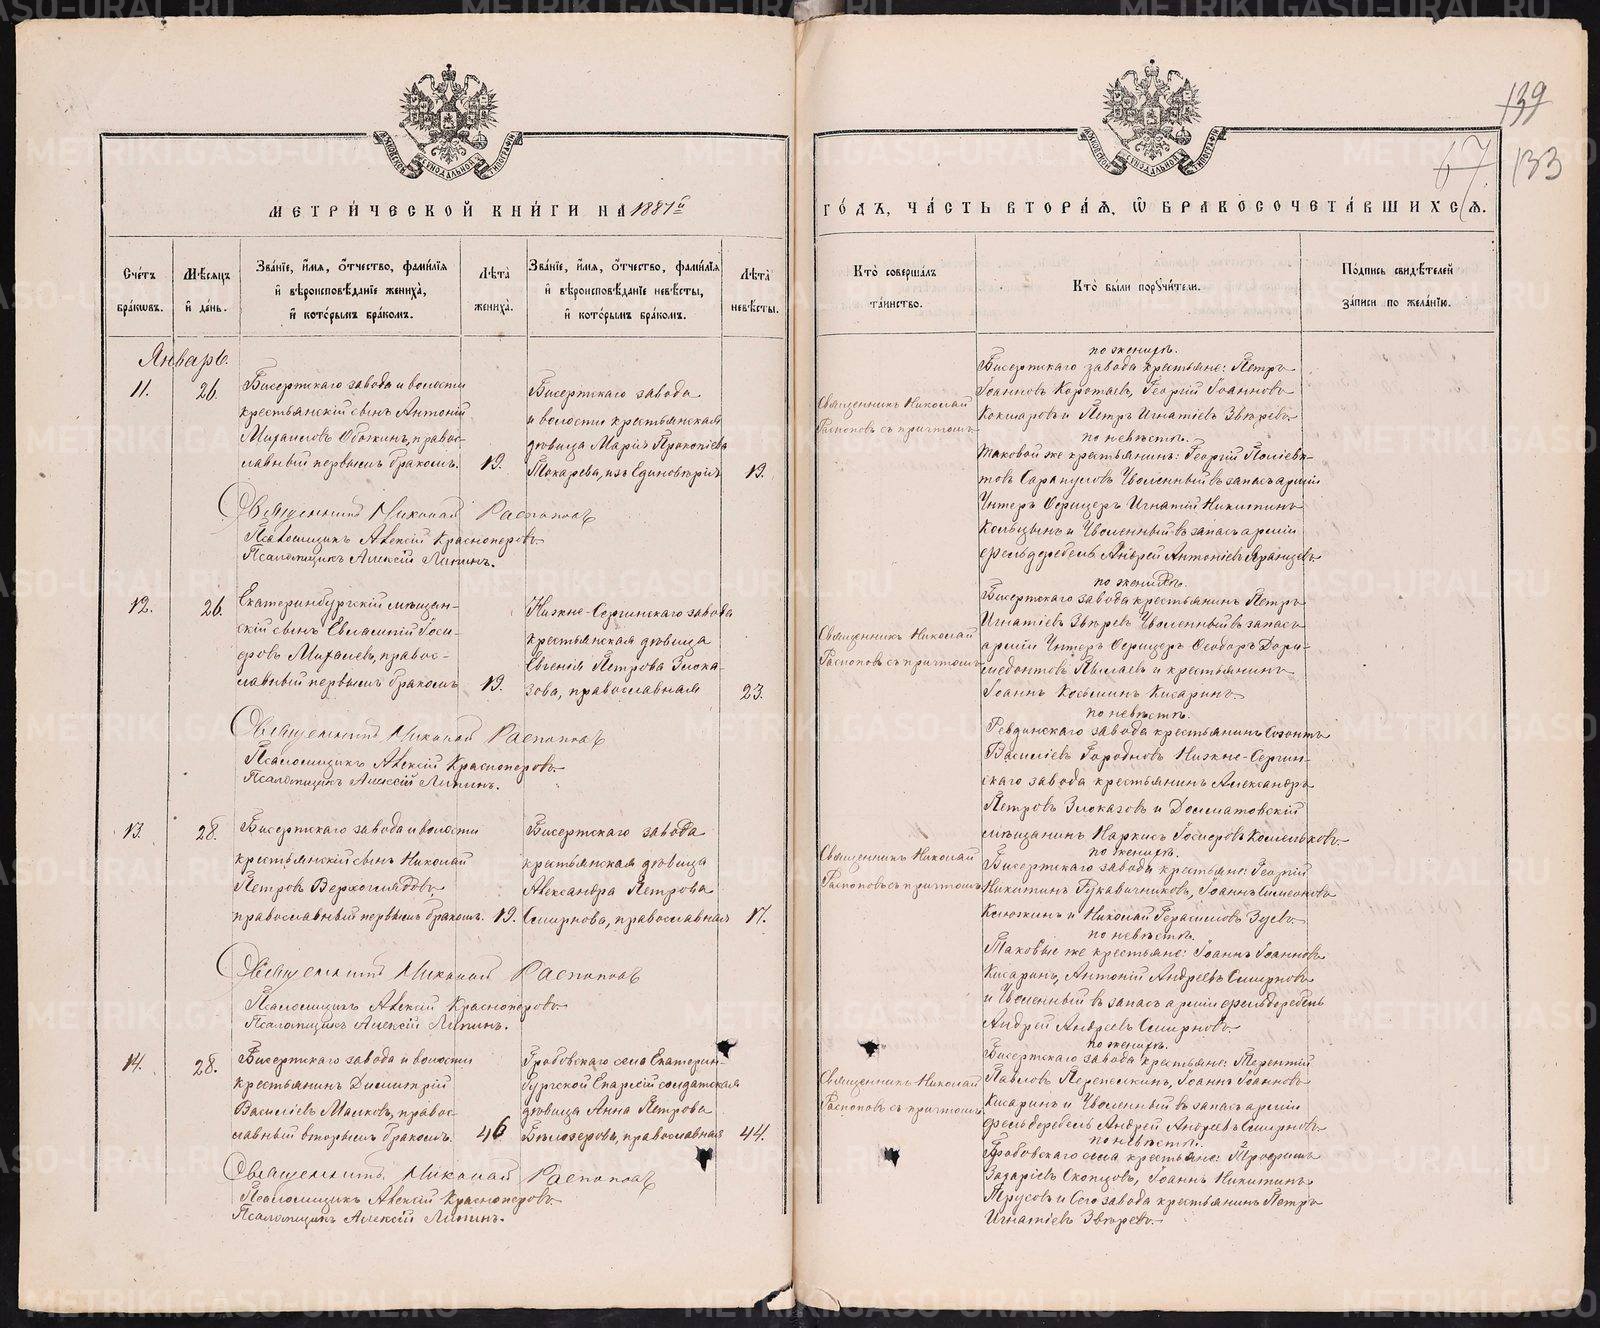 139
67 133
МЕТРИЧЕСКОЙ КНИГИ НА 1887й
ГОДЪ, ЧАСТЬ ВТОРАЯ, Ѡ БРАКОСОЧЕТАВШИХСЯ.
Счетъ браковъ.
Мѣсяцъ и день.
Званіе, имя, отчество, фамилія
и вѣроисповѣданіе жениха,
и которымъ бракомъ.
Лѣта жениха.
Званіе, имя, отчество, фамилія
и вѣроисповѣданіе невѣсты,
и которымъ бракомъ.
Лѣта невѣсты.
Кто совершалъ
таинство.
Кто были поручители.
Подпись свидѣтелей
записи по желанію.
Январь.
11.
26.
Бисертскаго завода и волости
крестьянскій сынъ Антоній
Михаиловъ Обожинъ, правос-
лавный первымъ бракомъ.
19.
Бисертскаго завода
и волости крестьянская
дѣвица Марія Прокопіева
Токарева, изъ Единовѣрія
19.
Священникъ Николай
Распоповъ съ причтомъ
по женихѣ.
Бисертскаго завода крестьяне: Петръ
Іоанновъ Коротаевъ, Георгій Іоанновъ
Кокшаровъ и Петръ Игнатіевъ Звѣревъ
по невѣстѣ.
Таковой же крестьянинъ: Георгій Поліевк-
товъ Сарапуловъ Уволенный въ запасъ арміи
Унтеръ Офицеръ Игнатій Никитинъ
Кольцынъ и Уволенный въ запасъ арміи
фельдфебель Андрей Антоніевъ Яранцевъ
Священникъ Николай Распоповъ
Псаломщикъ Алексій Красноперовъ
Псаломщикъ Алексій Липинъ.
12.
26.
Екатеринбургскій мѣщан-
скій сынъ Евлампій Іоси-
фовъ Михалевъ, правос-
лавный первымъ бракомъ
19.
Нижне-Сергинскаго завода
крестьянская дѣвица
Евгенія Петрова Злока-
зова, православная
23.
Священникъ Николай
Распоповъ съ причтомъ
по женихѣ.
Бисертскаго завода крестьянинъ Петръ
Игнатіевъ Звѣревъ Уволенный въ запасъ
арміи Унтеръ Офицеръ Ѳеодоръ Дори-
медонтовъ Пылаевъ и крестьянинъ
Іоаннъ Косьминъ Кисаринъ
по невѣстѣ.
Ревдинскаго завода крестьянинъ Созонтъ
Василіевъ Городновъ Нижне-Сергин-
скаго завода крестьянинъ Александръ
Петровъ Злоказовъ и Долматовскій
мѣщанинъ Наркисъ Іосифовъ Кошельковъ
Священникъ Николай Распоповъ
Псаломщикъ Алексій Красноперовъ
Псаломщикъ Алексій Липинъ.
13.
28.
Бисертскаго завода и волости
крестьянскій сынъ Николай
Петровъ Верхоглядовъ
православный первымъ бракомъ.
19.
Бисертскаго завода
крестьянская дѣвица
Александра Петрова
Смирнова, православная
17.
Священникъ Николай
Распоповъ съ причтомъ
по женихѣ.
Бисертскаго завода крестьяне: Георгій
Никитинъ Рукавичниковъ, Іоаннъ Симеоновъ
Ксюжинъ и Николай Герасимовъ Зуевъ
по невѣстѣ.
Таковые же крестьяне: Іоаннъ Іоанновъ
Кисаринъ, Антоній Андреевъ Смирновъ
и Уволенный въ запасъ арміи фельдфебель
Андрей Андреевъ Смирновъ
Священникъ Николай Распоповъ
Псаломщикъ Алексій Красноперовъ
Псаломщикъ Алексій Липинъ.
14.
28.
Бисертскаго завода и волости
крестьянинъ Димитрій
Василіевъ Малковъ, правос-
лавный вторымъ бракомъ.
46
Гробовскаго села Екатерин-
бургской Епархіи солдатская
дѣвица Анна Петрова
Бѣлозерова, православная
44.
Священникъ Николай
Распоповъ съ причтомъ
по женихѣ.
Бисертскаго завода крестьяне: Терентій
Павловъ Перепелкинъ, Іоаннъ Іоанновъ
Кисаринъ и Уволенный въ запасъ арміи
фельдфебель Андрей Андреевъ Смирновъ
по невѣстѣ.
Гробовскаго села крестьяне: Трофимъ
Захаріевъ Скопцовъ, Іоаннъ Никитинъ
Трусовъ и Сего завода крестьянинъ Петръ
Игнатіевъ Звѣревъ
Священникъ Николай Распоповъ
Псаломщикъ Алексій Красноперовъ
Псаломщикъ Алексій Липинъ.